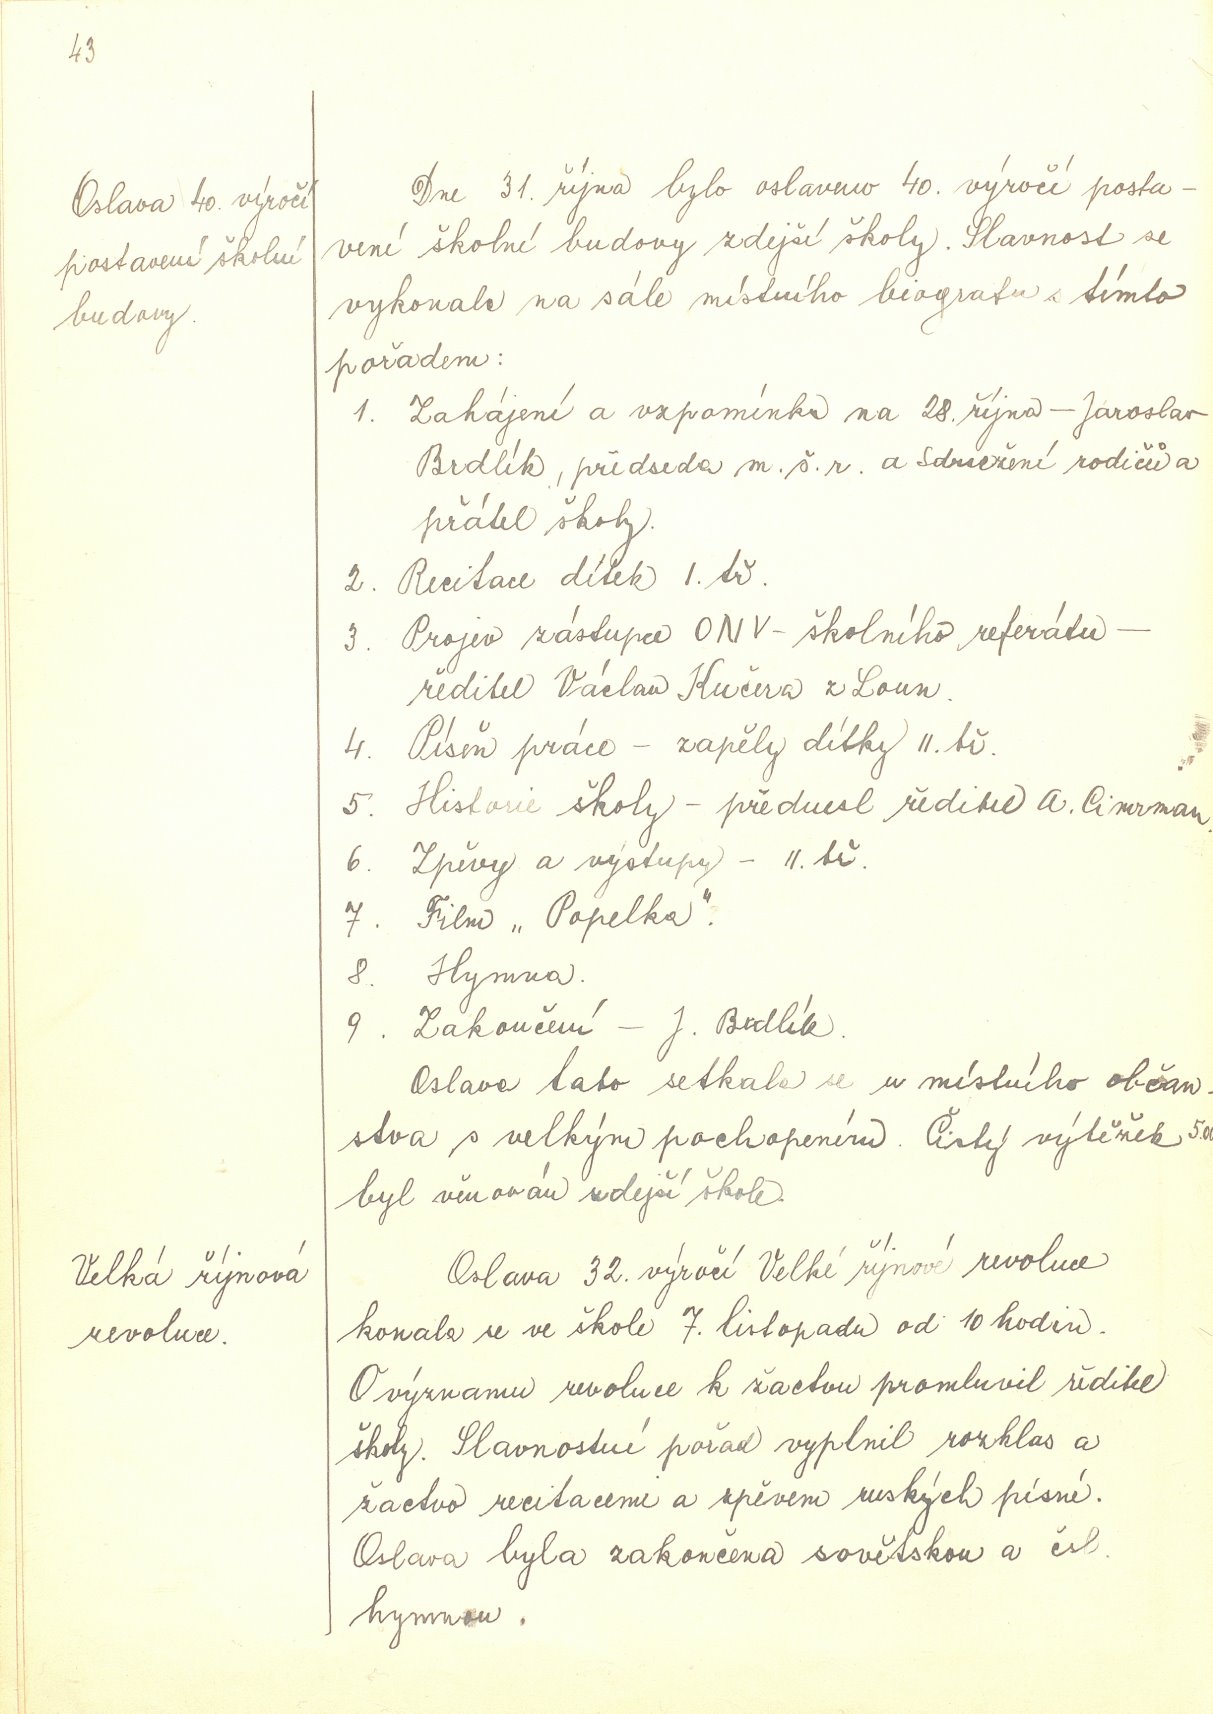 43
Oslava 40. výročí
postavení školní
budovy.
Dne 31. října bylo oslaveno 40. výročí posta-
vení školní budovy zdejší školy. Slavnost se
vykonala na sále místního biografu s tímto
pořadem:
1. Zahájení a vzpomínka na 28. října - Jaroslav
Brdlík, předseda m. š. r. a Sdružení rodičů a
přátel školy.
2. Recitace dítek 1. tř.
3. Projev zástupce ONV - školního referátu -
ředitel Václav Kučera z Loun.
4. Píseň práce - zapěly dítky II. tř.
5. Historie školy - přednesl ředitel A. Cimrman.
6. Zpěvy a výstupy - II. tř.
7. Film „Popelka".
8. Hymna.
9. Zakončení - J. Brdlík.
Oslava tato setkala se u místního občan-
stva s velkým pochopením. Čistý výtěžek
byl věnován zdejší škole.
Velká říjnová
revoluce.
Oslava 32. výročí Velké říjnové revoluce
konala se ve škole 7. listopadu od 10 hodin.
O významu revoluce k žactvu promluvil ředitel
školy. Slavnostní pořad vyplnil rozhlas a
žactvo recitacemi a zpěvem ruských písní.
Oslava byla zakončena sovětskou a čsl.
hymnou.